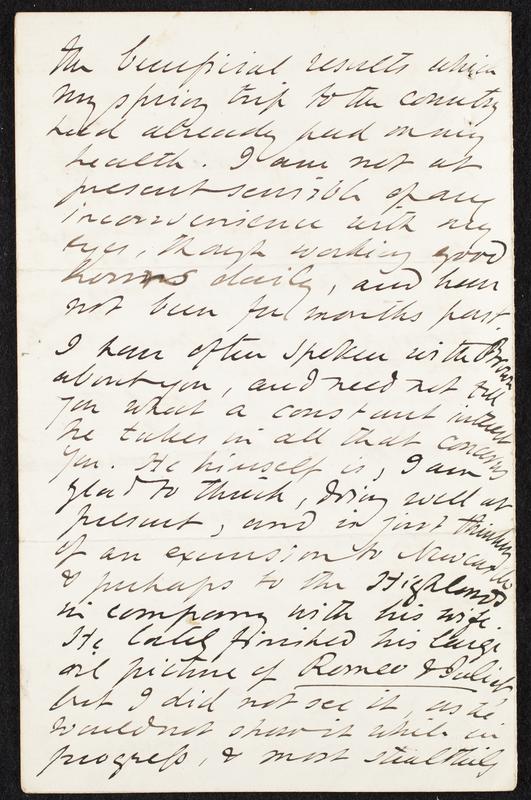 the beneficial results which
my spring trip to the country
had already had on my
health. I am not at
present sensible of any
inconvenience with my
eyes, though working good
hours daily, and have
not been for months past.
I have often spoken with Brown
about you, and need not tell
you what a constant interest
he takes in all that concerns
you. He himself is, I am
glad to think, doing well at
present, and is just thinking
of an excursion to Newcastle
& perhaps to the Highlands
in company with his wife.
He lately finished his large
oil picture of Romeo & Juliet
but I did not see it, as he
would not show it while in
progress, & most stealthily